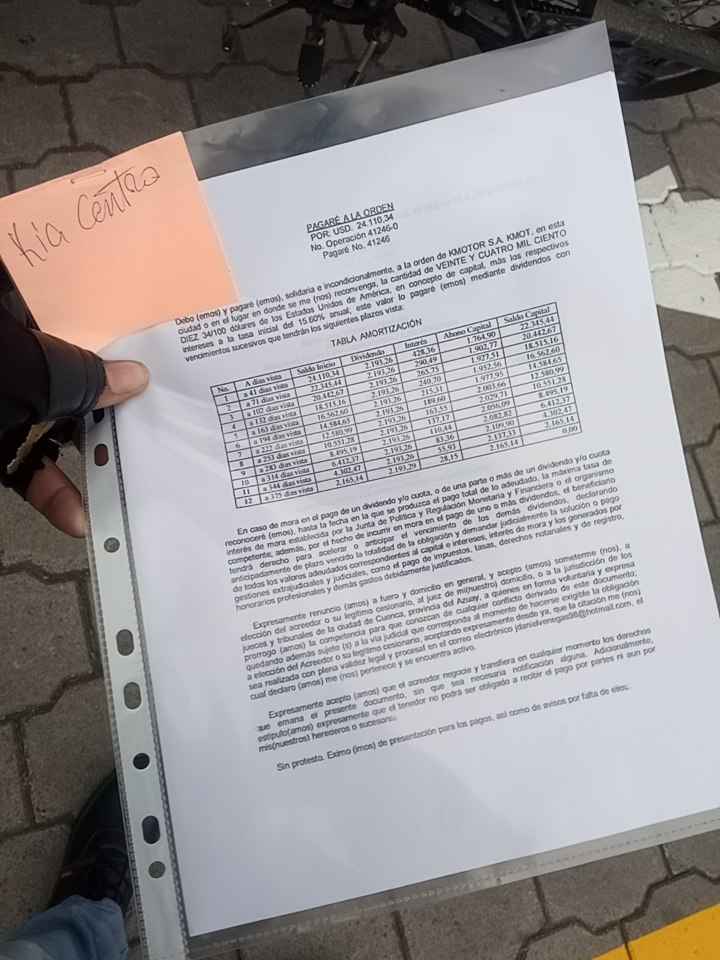 Kia Centro
PAGARÉ A LA ORDEN
POR. USD. 24.110,34
No. Operación 41246-0
Pagaré No. 41246
Debo (emos) y pagaré (emos), solidaria e incondicionalmente, a la orden de KMOTOR S.A. KMOT, en esta
ciudad o en el lugar en donde se me (nos) reconvenga, la cantidad de VEINTE Y CUATRO MIL CIENTO
DIEZ 34/100 dólares de los Estados Unidos de América, en concepto de capital, más los respectivos
intereses a la tasa inicial del 15.60% anual; este valor lo pagaré (emos) mediante dividendos con
vencimientos sucesivos que tendrán los siguientes plazos vista:
TABLA AMORTIZACIÓN
No. A días vista Saldo Inicio Dividendo Interés Abono Capital Saldo Capital
1 a 41 días vista 24.110,34 2.193,26 428,36 1.764,90 22.345,44
2 a 71 días vista 22.345,44 2.193,26 290,49 1.902,77 20.442,67
3 a 102 días vista 20.442,67 2.193,26 265,75 1.927,51 18.515,16
4 a 132 días vista 18.515,16 2.193,26 240,70 1.952,56 16.562,60
5 a 163 días vista 16.562,60 2.193,26 215,31 1.977,95 14.584,65
6 a 194 días vista 14.584,65 2.193,26 189,60 2.003,66 12.580,99
7 a 222 días vista 12.580,99 2.193,26 163,55 2.029,71 10.551,28
8 a 253 días vista 10.551,28 2.193,26 137,17 2.056,09 8.495,19
9 a 283 días vista 8.495,19 2.193,26 110,44 2.082,82 6.412,37
10 a 314 días vista 6.412,37 2.193,26 83,36 2.109,90 4.302,47
11 a 344 días vista 4.302,47 2.193,26 55,93 2.137,33 2.165,14
12 a 375 días vista 2.165,14 2.193,29 28,15 2.165,14 0,00
En caso de mora en el pago de un dividendo y/o cuota, o de una parte o más de un dividendo y/o cuota
reconoceré (emos), hasta la fecha en la que se produzca el pago total de lo adeudado, la máxima tasa de
interés de mora establecida por la Junta de Política y Regulación Monetaria y Financiera o el organismo
competente; además, por el hecho de incurrir en mora en el pago de uno o más dividendos, el beneficiario
tendrá derecho para acelerar o anticipar el vencimiento de los demás dividendos, declarando
anticipadamente de plazo vencido la totalidad de la obligación y demandar judicialmente la solución o pago
de todos los valores adeudados correspondientes al capital e intereses, interés de mora y los generados por
gestiones extrajudiciales y judiciales, como el pago de impuestos, tasas, derechos notariales y de registro,
honorarios profesionales y demás gastos debidamente justificados.
Expresamente renuncio (amos) a fuero y domicilio en general, y acepto (amos) someterme (nos), a
elección del acreedor o su legítimo cesionario, al juez de mi(nuestro) domicilio, o a la jurisdicción de los
jueces y tribunales de la ciudad de Cuenca, provincia del Azuay, a quienes en forma voluntaria y expresa
prorrogo (amos) la competencia para que conozcan de cualquier conflicto derivado de este documento;
quedando además sujeto (s) a la vía judicial que corresponda al momento de hacerse exigible la obligación
a elección del Acreedor o su legítimo cesionario, aceptando expresamente desde ya, que la citación me (nos)
sea realizada con plena validez legal y procesal en el correo electrónico jdanielvenegas98@hotmail.com, el
cual declaro (amos) me (nos) pertenece y se encuentra activo.
Expresamente acepto (amos) que el acreedor negocie y transfiera en cualquier momento los derechos
que emana el presente documento, sin que sea necesaria notificación alguna. Adicionalmente,
estipulo(amos) expresamente que el tenedor no podrá ser obligado a recibir el pago por partes ni aun por
mis(nuestros) herederos o sucesores.
Sin protesto. Eximo (imos) de presentación para los pagos, así como de avisos por falta de ellos.